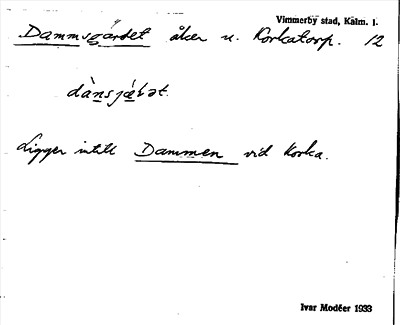 Vimmerby stad, Kalm. l.
Dammsgärdet åker u. Korkatorp. 12
Ligger intill Dammen vid Korka.
Ivar Modéer 1933